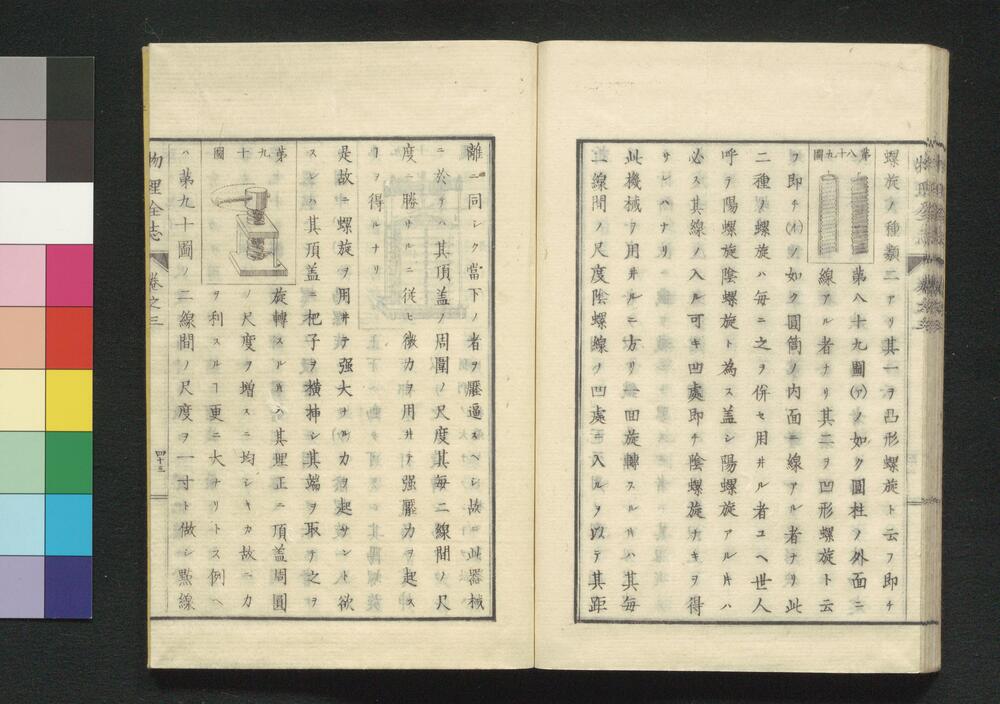 螺旋ノ種類二アリ其一ヲ凸形螺旋ト云フ即チ
第八十九圖
第八十九圖(ア)ノ如ク圓柱ノ外面ニ
線アル者ナリ其二ヲ凹形螺旋ト云
フ即チ(イ)ノ如ク圓筒ノ内面ニ線アル者ナリ此
二種ノ螺旋ハ毎ニ之ヲ併セ用井ル者ユヘ世人
呼テ陽螺旋陰螺旋ト為ス蓋シ陽螺旋アル時ハ
必ス其線ノ入ル可キ凹處即チ陰螺旋ナキヲ得
サレハナリ
此機械ヲ用井ルニ方リ一回旋轉スル時ハ其毎
二線間ノ尺度陰螺線ノ凹處ニ入ルヲ以テ其距
離ニ同シク當下ノ者ヲ壓逼スヘシ故ニ此器械
ニ於テハ其頂蓋ノ周圍ノ尺度其毎二線間ノ尺
度ニ勝サルニ従ヒ微力ヲ用井テ强壓力ヲ起ス
ヿヲ得ルナリ
是故ニ螺旋ヲ用井テ强大ナル力ヲ起サント欲
スレハ其頂蓋ニ杷子ヲ横揷シ其端ヲ取テ之ヲ
第九十圖
旋轉スル時ハ其理正ニ頂蓋周圓
ノ尺度ヲ増スニ均シキカ故ニ力
ヲ利スルヿ更ニ大ナリトス例ヘ
ハ第九十圖ノ二線間ノ尺度ヲ一寸ト做シ點線
物理全志
卷之三
四十三